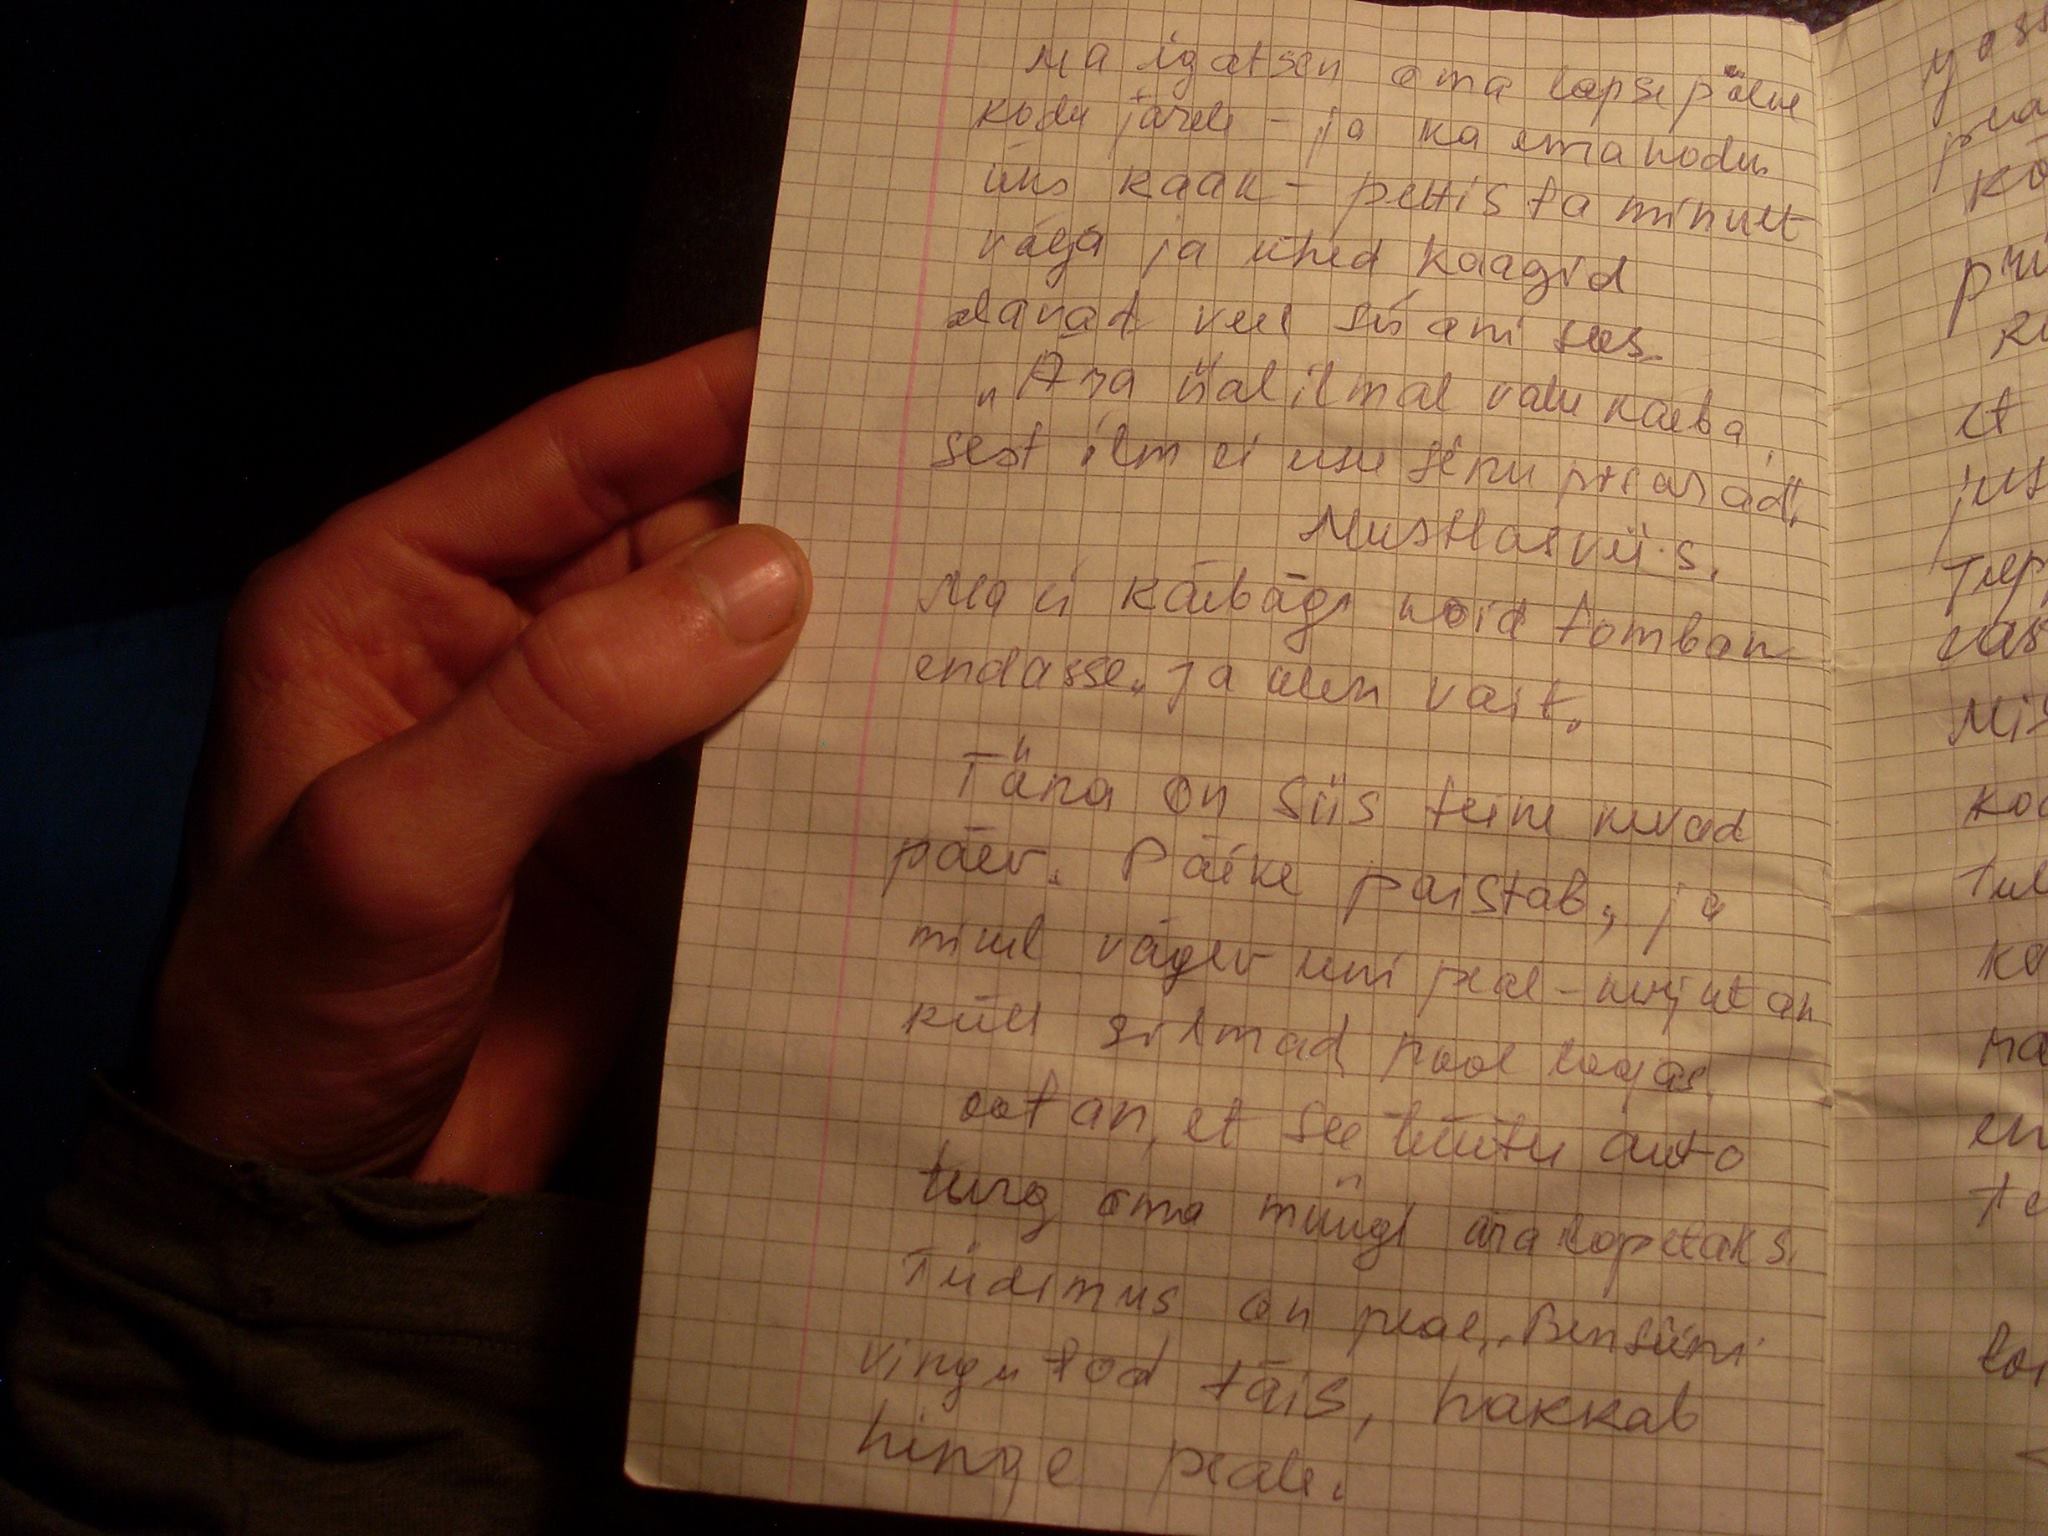 Ma igatsen oma lapsepõlve
kodu järele - ja ka ema kodus
üks kaak - pettis ta minult
väga ja ühed kaagid
elavad veel siiani sees.
"Ära iial ilmal valu kaeba,
sest ilm ei usu sinu pisaraid".
Mustlasviis.
Ma ei kaebagi vaid tõmban
endasse, ja olen vait.
Täna on siis teine kevad
päev. Päike paistab, ja
minul vägev uni peal - kirjutan
küll silmad pool loojas
ootan, et see tüütu auto
turg oma müügi ära lopetaks.
Tüdimus on peal, Bensiini
vingu tod täis, hakkab
hinge peale.